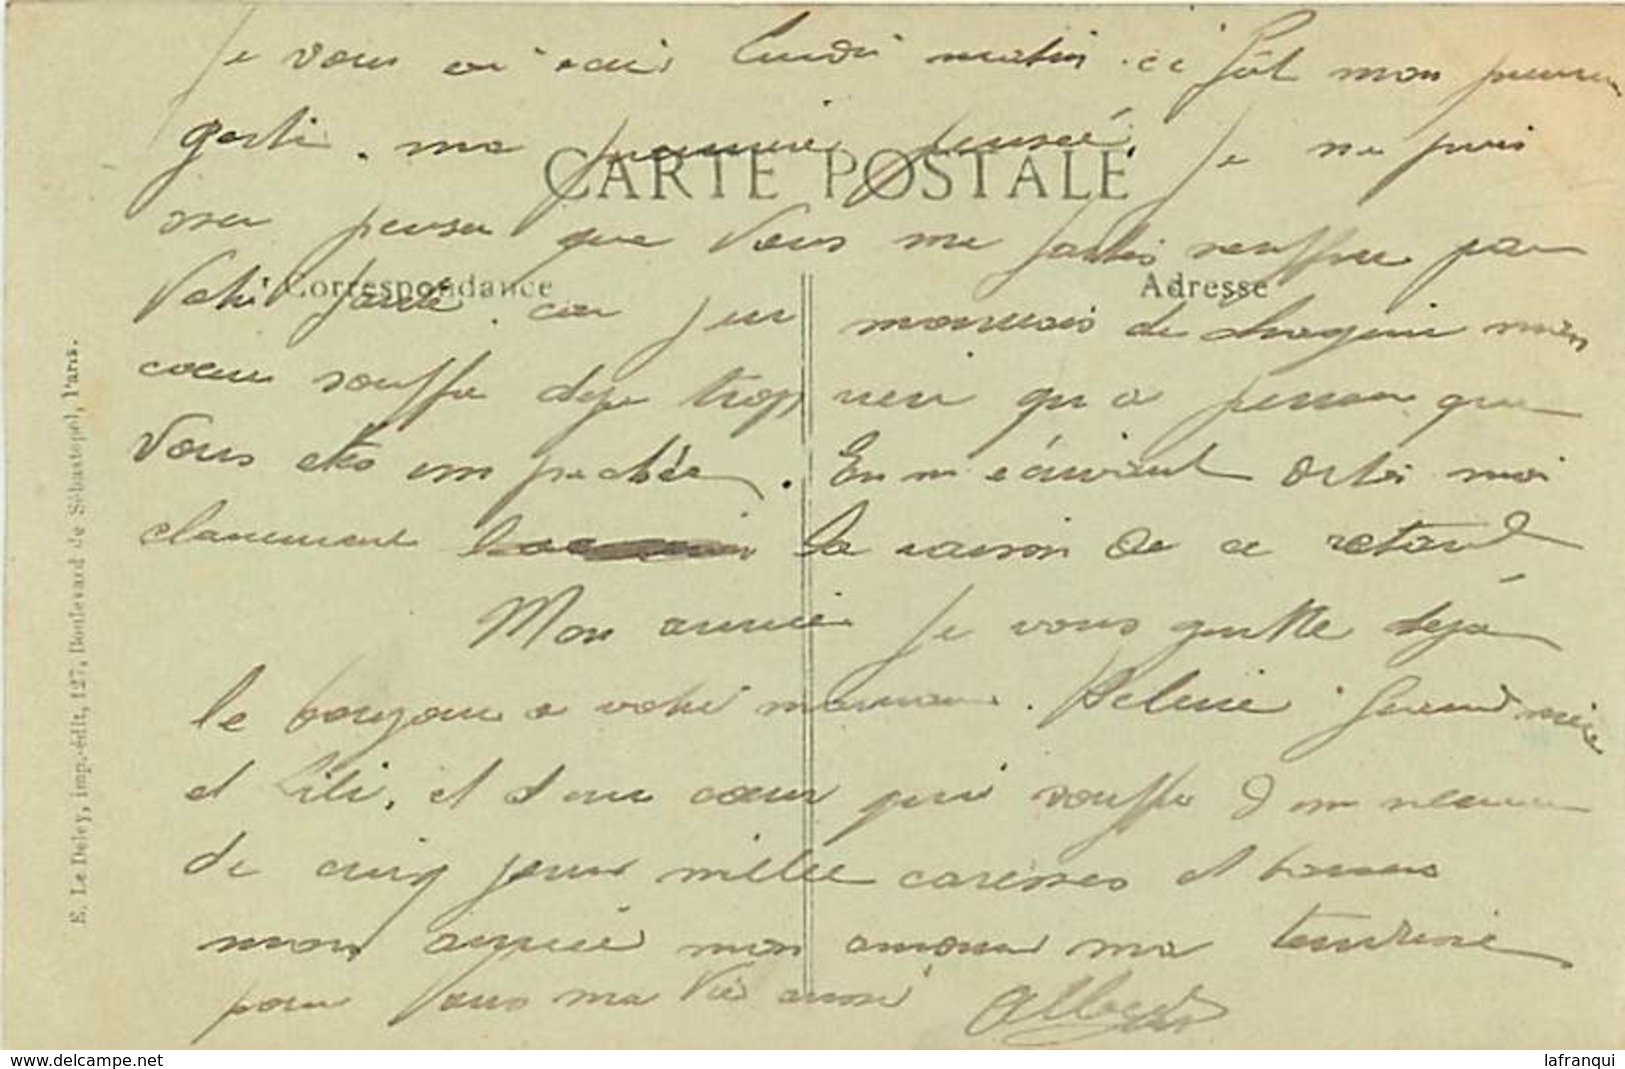 Je vous ai écris lundi matin. ce fût mon premier
geste. ma premiere pensée. Je ne puis
CARTE POSTALE
me penser que vous me faites souffrir par
Correspondance
Adresse
votre faute car j'en mourrais de chagrin mon
coeur souffre deja trop rien qu'a penser que
vous etes empechée. En m'écrivant dites moi
clairement la raison de ce retard
Mon aimée Je vous quitte déjà
le bonjour a votre maman. Helene Grand mère
et Lili. et d'un coeur qui souffre d'un
de cinq jours mille caresses et baisers
mon aimée mon amour ma tendresse
pour vous ma vie aussi Albert
E. Le Deley, imp.-édit., 127, Boulevard de Sébastopol, Paris.
lafranqui
www.delcampe.net